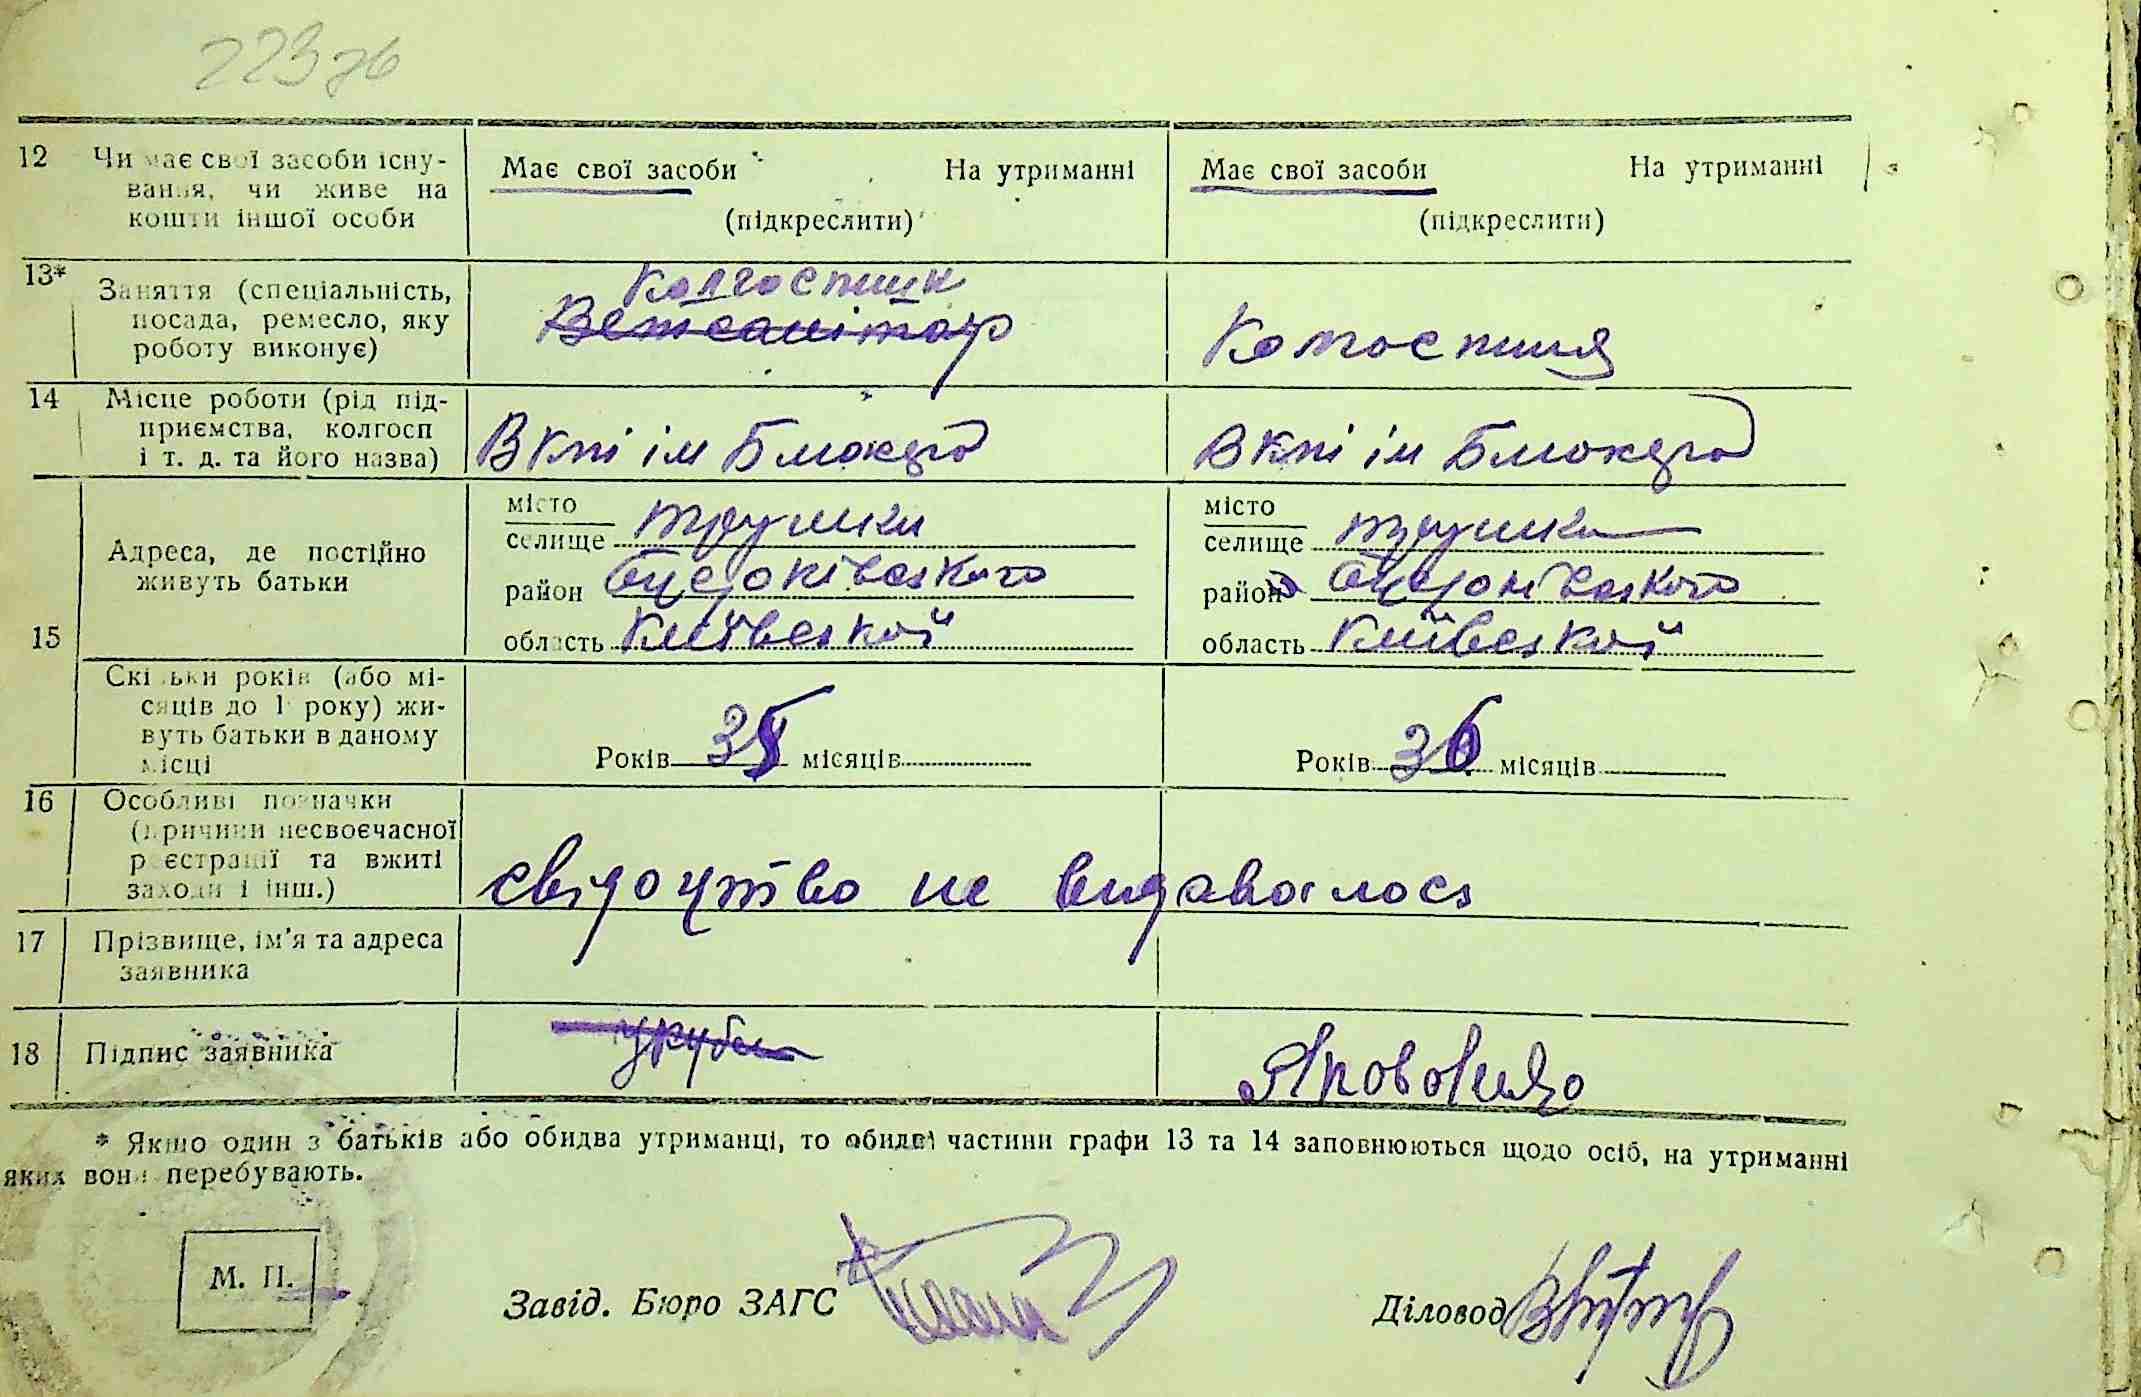 223 зв
12 Чи має свої засоби існу-
вання, чи живе на
кошти іншої особи
Має свої засоби На утриманні
(підкреслити)
Має свої засоби На утриманні
(підкреслити)
13* Заняття (спеціальність,
посада, ремесло, яку
роботу виконує)
Колгоспник
Ветсанітар
Колгоспниця
14 Місце роботи (рід під-
приємства, колгосп
і т. д. та його назва)
В к-пі ім
В к-пі ім
15 Адреса, де постійно
живуть батьки
місто
селище Трушки
район
область Київської
місто
селище Трушки
район
область Київської
Скільки років (або мі-
сяців до 1 року) жи-
вуть батьки в даному
місці
Років 35 місяців
Років 36 місяців
16 Особливі позначки
(причини несвоєчасної
реєстрації та вжиті
заходи і інш.)
свідоцтво не видавалось
17 Прізвище, ім'я та адреса
заявника
18 Підпис заявника
* Якщо один з батьків або обидва утриманці, то обидві частини графи 13 та 14 заповнюються щодо осіб, на утриманні
яких вони перебувають.
М. П.
Завід. Бюро ЗАГС
Діловод